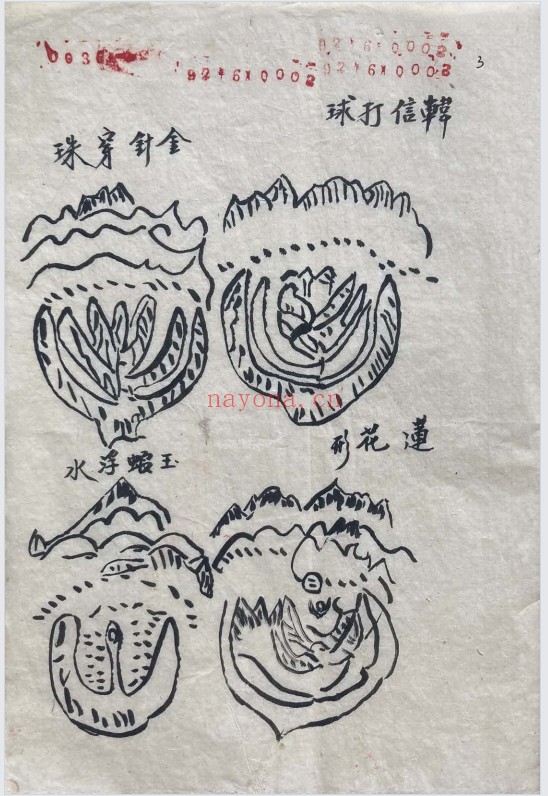 0036
92461X0002
92461X0002
92461X0002
3
韓信打球
金針穿珠
nayona.cn
蓮花形
玉蛤浮水